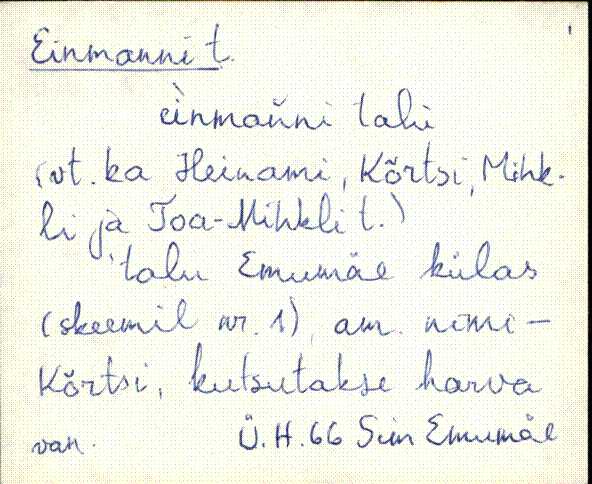 Einmanni t.
èinman̆ni talu
(vt. ka Heinami, Kõrtsi, Mihk-
li ja Toa-Mihkli t.)
talu Emumäe külas
(skeemil nr. 1), am. nimi -
Kõrtsi, kutsutakse harva
van. Ü.H. 66 Sim Emumäe